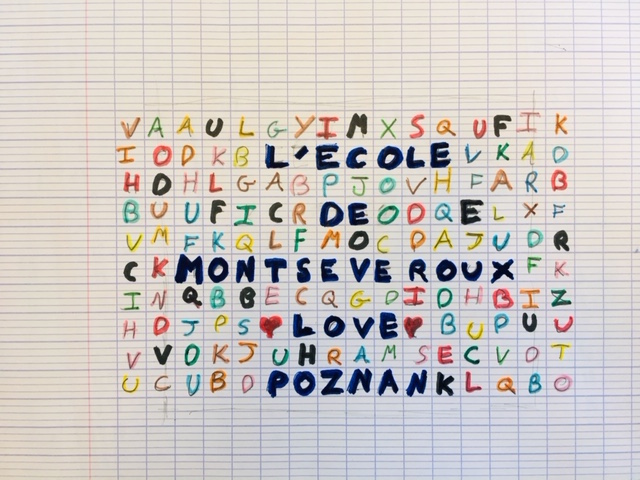 V A A U L G Y I M X S Q U F I K
I O D K B L'ECOLE V K A D
H D H L G A B P J O V H F A R B
B U U F I C R D E O D Q E L X F
V M F K Q L F M O C P A J U D R
C K MONTSEVEROUX F K
I N Q B B E C Q G D I D H B I Z
H D J P S ♥ LOVE ♥ B U P U U
V V O K J U H R A M S E C V O T
U C U B D POZNAN K L Q B O